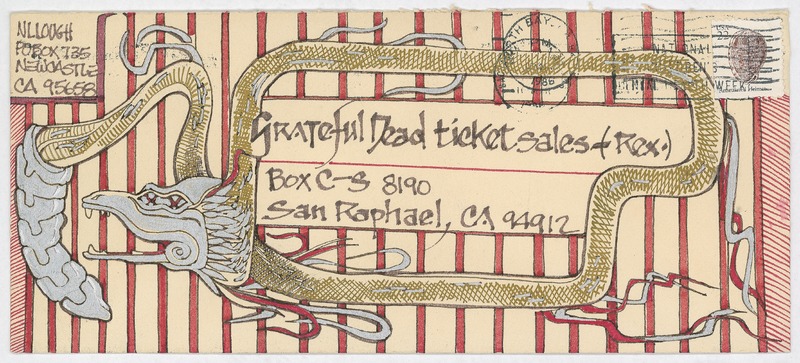 NLLOUGH
PO BOX 735
NEWCASTLE
CA 95658
NORTH BAY
1986
NATIONAL
WEEK
USA
22
Grateful Dead ticket sales - (Rex.)
Box C-S 8190
San Raphael, CA 94912